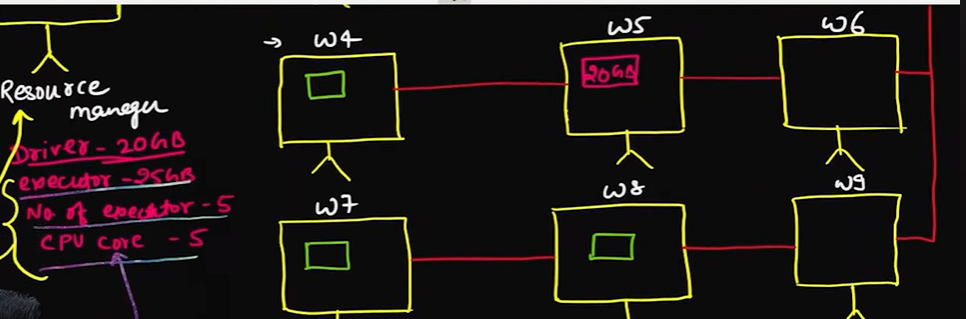 Resource
manager
Driver - 20GB
executor - 25GB
No. of executor - 5
CPU core - 5
W4
W5
W6
20GB
W7
W8
W9